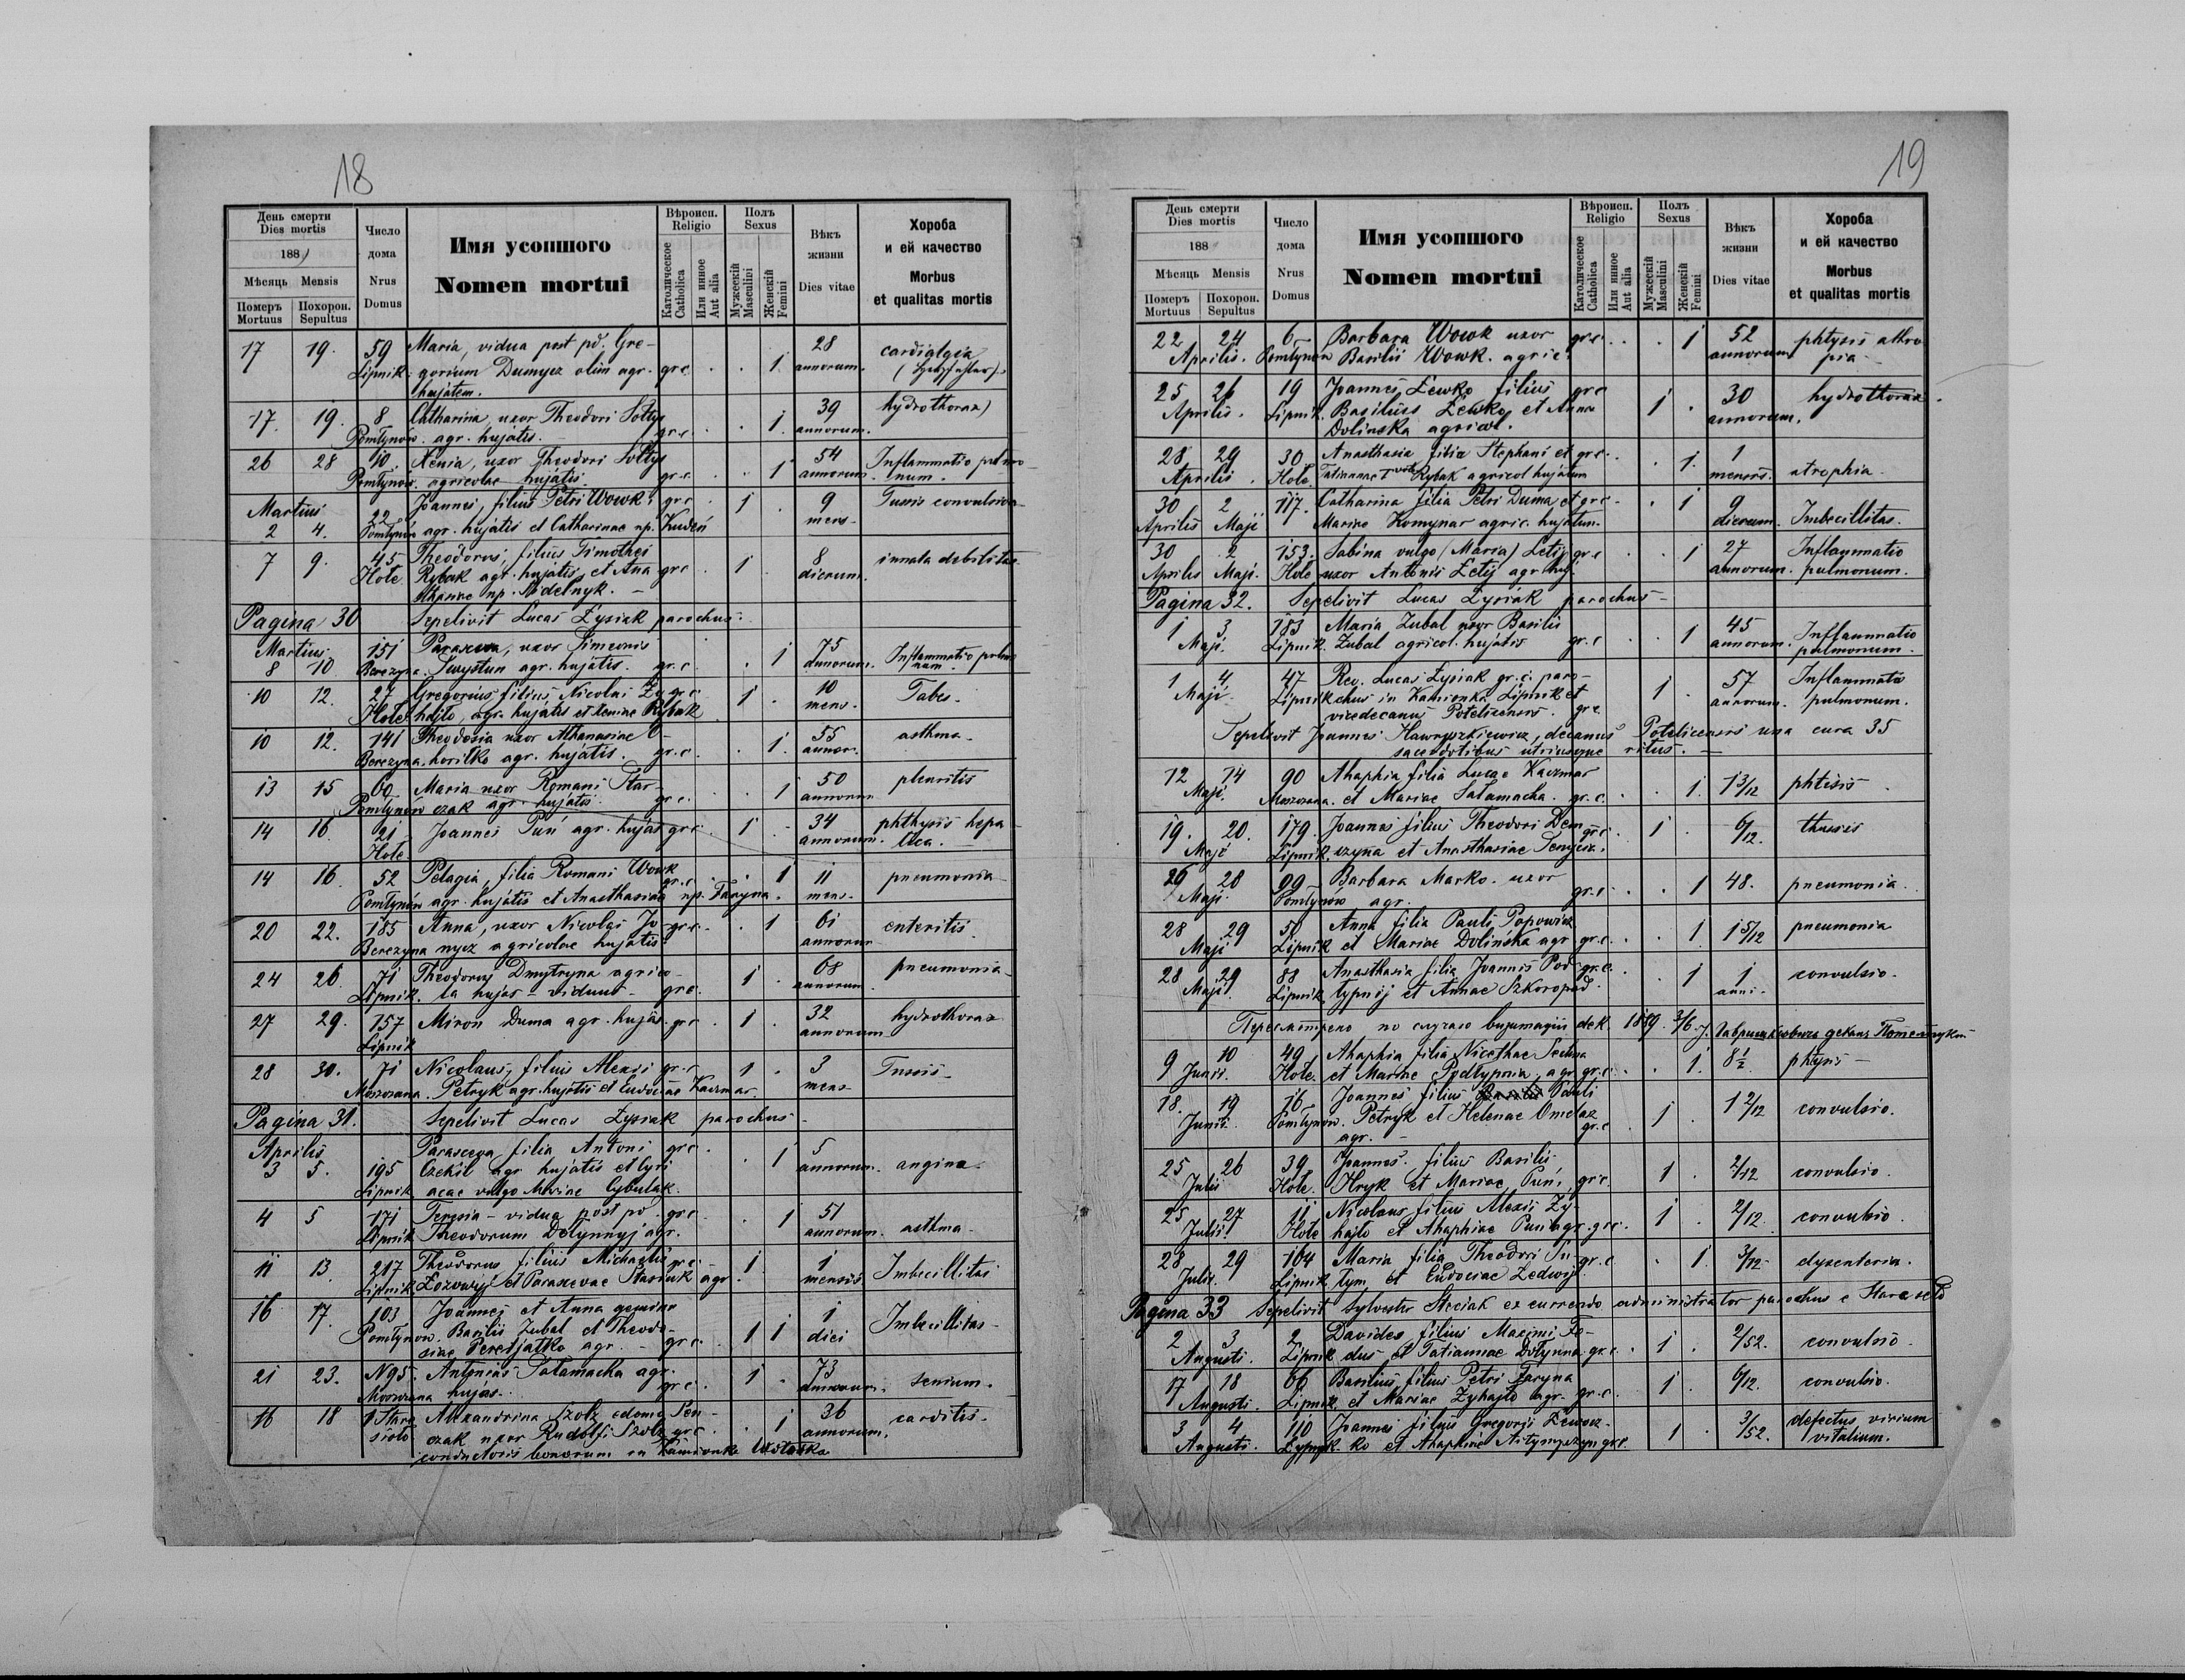 18
День смерти
Dies mortis
188
Мѣсяць Mensis
Померъ Похорон.
Mortuus Sepultus
Число
дома
Nrus
Domus
Имя усопшого
Nomen mortui
Вѣроисп.
Religio
Католическое
Catholica
Или инное
Aut alia
Полъ
Sexus
Мужескій
Masculini
Женскій
Femini
Вѣкъ
жизни
Dies vitae
Хороба
и ей качество
Morbus
et qualitas mortis
17 19. 59 Maria, vidua post pd. Gre- 28 cardialgia
Lipnik. gorium Dumycz olim agr. gr c. . . 1. annorum.
hujatem.
17. 19. 8 Catharina, uxor Theodori Sołtys 39 hydrothorax
Pomłynów. agr. hujatis. gr.c. . . 1. annorum.
26 28 10. Xenia, uxor Theodori Sołtys 54 Inflammatio pulmo-
Pomłynów. agricolae hujatis. gr.c. . . 1 annorum. num.
Martius 22 Joannes, filius Petri Wowk gr.c . 1 . 9 Tussis convulsiva
2 4. Pomłynów agr. hujatis et Catharinae np. mens-
7 9. 45 Theodorus, filius Timothei 8 innata debilitas
Hole. Rybak agr. hujatis, et Ana gr c . 1 . dierum.
np.
Pagina 30 Sepelivit Lucas Łysiak parochus-
Martius 151 uxor Simeonis 75 Inflammatio pulmo
8 10 Berezyna. Swystun agr. hujatis. gr.c. . . 1 annorum. num.
10 12. 27 Gregorius filius Nicolai Zy gr c 1 . 10 Tabes-
Hole hajło, agr. hujatis et Xeniae Rybak mens.
10 12. 141 Theodosia uxor Athanasiae O- 55 asthma-
Berezyna. horilko agr. hujatis. gr.c . . 1. annor.
13 15 60 Maria uxor Romani Star- 50 pleuritis
Pomłynów czak agr. hujatis. gr c. . . 1 annorum
14 16. 21 Joannes Puń agr. hujas gr c. . 1 . 34 phthysis hepa
Hole annorum. tica.-
14 16. 52 Pelagia, filia Romani Wowk gr.c . . 1 11 pneumonia
Pomłynów agr. hujatis et Anasthasiae np. Faryna. mens-
20 22. 185 Anna, uxor Nicolai Jo- gr.c. . 1 61 enteritis
Berezyna nycz agricolae hujatis. annorum
24 26. 71 Theodorus Dmytryna agrico- 68 pneumonia-
Lipnik. la hujas- viduus- gr c. 1 . annorum.
27 29. 157 Miron Duma agr. hujas. gr c . 1 . 32 hydrothorax
Lipnik annorum
28 30. 71 Nicolaus, filius Alexii gr.c 1 . 3 Tussis-
Moszczana. Petryk agr. hujatis et Eudociae Kaczmar. mens-
Pagina 31. Sepelivit Lucas Łysiak parochus-
Aprilis Parasceva filia Antoni gr c . 5
3 5. 195 agr hujatis et . 1 annorum. angina-
Lipnik vulgo Mariae Cybulak.
4 5 171 Teresia- vidua post pd. gr c . . 1 51 asthma-
Lipnik Theodorum Dołynnyj agr. annorum.
11 13. 217 Theodorus filius Michaelis gr c. 1 . 1 Imbecillitas
Lipnik Łozowyj et Parascevae Stasiuk agr. mensis
16 17. 103 Joannes et Anna gemini 1 Imbecillitas-
Pomłynów. Basilii Zubal et Theodo- 1 1 diei
siae Peredjatko agr. - gr c.
21 23. N95. Antonias Sałamacha agr. 73 senium.
Moszczana hujas. gr c. 1 - annorum.
16 18 1 Stare Alexandrina Szolz edomo Sen- 36 carditis-
sioło czak uxor Rudolfi Szolz gr c. . . 1 annorum.
conductoris bonorum in Kamionka Wołoska
19
День смерти
Dies mortis
188
Мѣсяць Mensis
Померъ Похорон.
Mortuus Sepultus
Число
дома
Nrus
Domus
Имя усопшого
Nomen mortui
Вѣроисп.
Religio
Католическое
Catholica
Или инное
Aut alia
Полъ
Sexus
Мужескій
Masculini
Женскій
Femini
Вѣкъ
жизни
Dies vitae
Хороба
и ей качество
Morbus
et qualitas mortis
22 24 6 Barbara Wowk uxor gr c. . . 1 52 phtysis athro
Aprilis. Pomłynów Basilii Wowk. agric. annorum pia-
25 26 19 Joannes Lewko filius gr c 30 hydrothorax.
Aprilis. Lipnik. Basilius Lewko, et Anna 1 . annorum.
Dolinska agricol.
28 29 30 Anasthasia filia Stephani et gr c. . . 1. 1
Aprilis. Hole. Tatiannae Rybak agricol hujatum mensis. atrophia-
30 2 117. Catharina filia Petri Duma et gr c - . 1 9
Aprilis Maji Mariae Komynar agric. hujatum. dierum. Imbecillitas.
30 2 153. Sabina vulgo (Maria) Letij gr c . . 1 27 Inflammatio
Aprilis Maji. Hole uxor Antonii Letij agr huj. annorum. pulmonum.
Pagina 32. Sepelivit Lucas Łysiak parochus-
1 3 183 Maria Zubal uxor Basilii 45 Inflammatio
Maji. Lipnik. Zubal agricol. hujatis gr. c . . 1 annorum. pulmonum.
1 4 47 Rev. Lucas Łysiak gr. c. paro- 57 Inflammatio
Maji. Lipnik chus in Kamionka Lipnik et 1 . annorum. pulmonum.
vicedecanus Potelicensis. gr c
Sepelivit Joannes Hawryszkiewicz, decanus Potelicensis una cum 35
sacerdotibus utriusque ritus.-
12 14 90 Ahaphia filia Lucae Kaczmar
Maji. Moszczana. et Mariae Sałamacha. gr. c. . . 1. 1 3/12 phtisis
19. 20. 179. Joannes filius Theodori Dem- gr c 1 . 6/12. thussis
Maji Lipnik. czyna et Anasthasiae
26 28 99 Barbara Marko. uxor gr. c. . . 1 48. pneumonia.
Maji. Pomłynów agr.
28 29 50 Anna filia Pauli Popowicz
Maji Lipnik et Mariae Dolińska agr gr. c. . . 1 1 5/12 pneumonia
28 29 88 Anasthasia filia Joannis Pod- gr. c. . 1 1 convulsio-
Maji. Lipnik. typnij et Annae Szkoropad. anni-
по случаю dek. 1889. 3/6
9 10 49 Ahaphia filia Nicethae
Junii. Hole. et Mariae Podłypnia. agr gr. c. . 1. 8 1/2 phtysis-
18. 19 16 Joannes filius Pauli
Junii. Pomłynów. Petryk et Helenae Omelaz gr. c 1 . 1 2/12 convulsio.
agr.-
25 26 39 Joannes. filius Basilii
Julii Hole. Hryk et Mariae Puń. gr c. 1 . 2/12 convulsio.
25. 27 11 Nicolaus filius Alexii Zy-
Julii Hole hajło et Ahaphiae Puń agr. gr c. 1 . 2/12. convulsio.
28 29 164 Maria filia Theodori gr. c. . 1. 3/12- dyzenteria.
Julii. Lipnik tym. et Eudociae Ledwij.
Pagina 33 Sepelivit Sylvester Steciak excurrendo administrator parochus e Stare sioło
2 3 2 Davides filius Maximi Fe-
Augusti. Lipnik dus et Tatiannae Dołynna. gr. c. . 1 . 2/52. convulsio.
17 18 66 Basilius filius Petri Faryna
Augusti. Lipnik. et Mariae Zyhajło agr. gr. c. 1 . 6/12. convulsio.
3 4 110 Joannes filius Gregorii 3/52. defectus virium
Augusti. Lypnyk. ko et Ahaphiae gr c. 1 . vitalium.